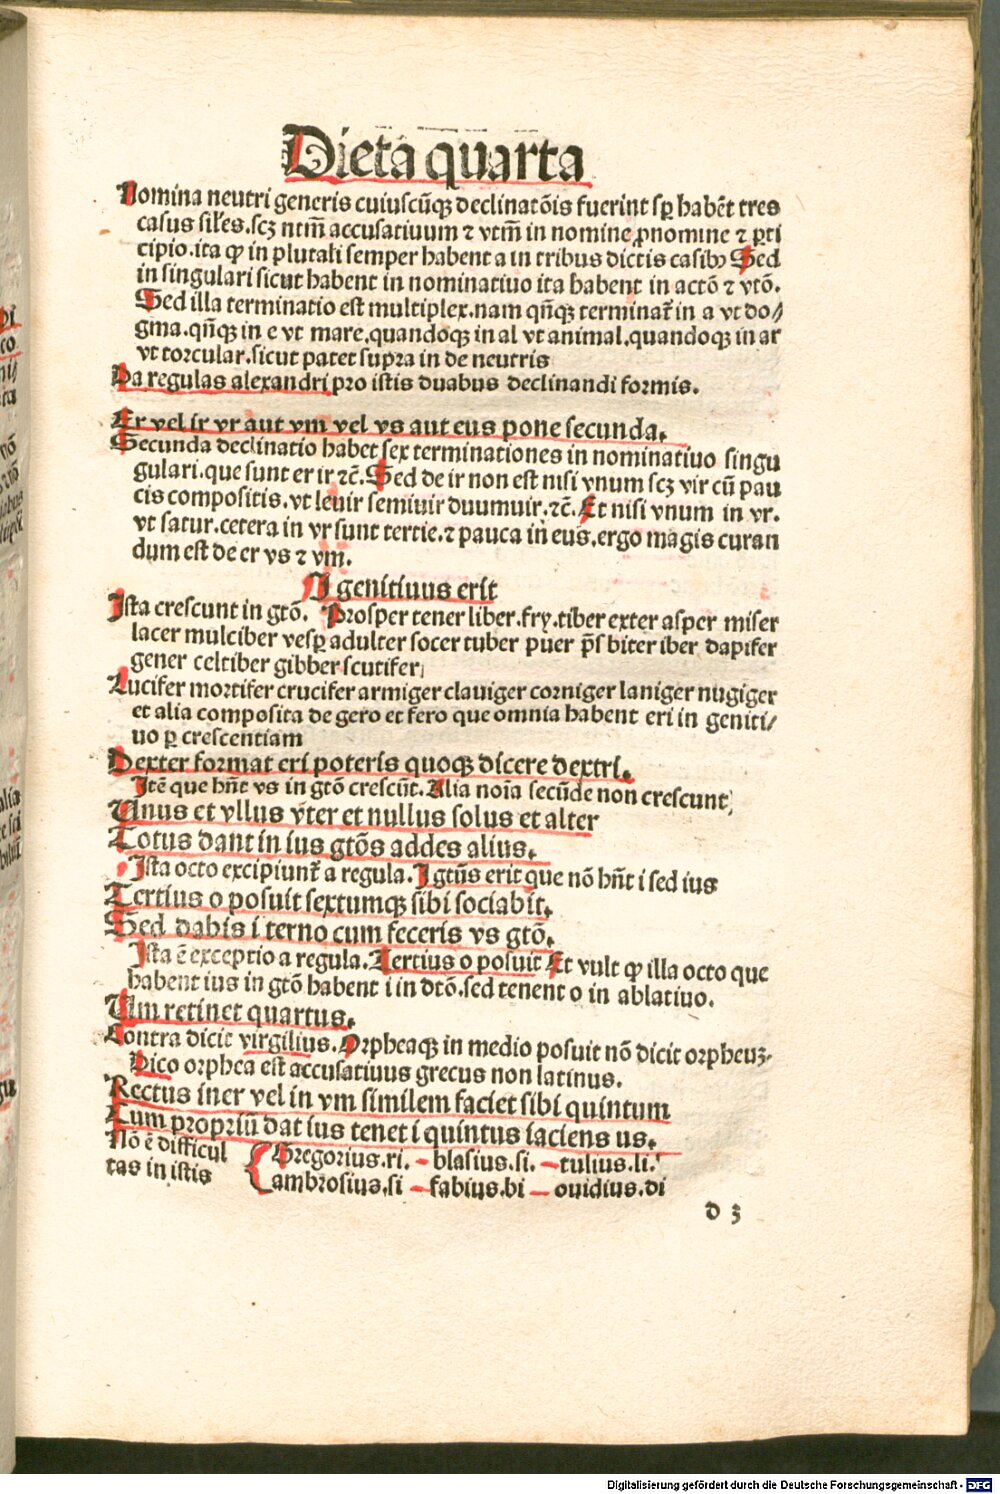 Dieta quarta
Nomina neutri generis cuiuscūqȝ declinatōis fuerint sꝑ habēt tres
casus siłes.scȝ ntm̄ accusatiuum ⁊ vtm̄ in nomine ꝓnomine ⁊ ꝑti
cipio.ita ꝙ in plurali semper habent a in tribus dictis casibꝫ Sed
in singulari sicut habent in nominatiuo ita habent in actō ⁊ vtō.
Sed illa terminatio est multiplex.nam qn̄qȝ terminat᷑ in a vt do⸗
gma.qn̄qȝ in e vt mare,quandoqȝ in al vt animal,quandoqȝ in ar
vt torcular.sicut patet supra in de neutris
Da regulas alexandri pro istis duabus declinandi formis.
Er vel ir vr aut vm vel vs aut eus pone secunda.
Secunda declinatio habet sex terminationes in nominatiuo singu
gulari.que sunt er ir ⁊c̄. Sed de ir non est nisi vnum scȝ vir cū pau
cis compositis.vt leuir semiuir duumuir.⁊c̄. Et nisi vnum in vr.
vt satur.cetera in vr sunt tertie.⁊ pauca in eus.ergo magis curan
dum est de er vs ⁊ vm.
I genitiuus erit
Ista crescunt in gtō. Prosper tener liber.fry.tiber exter asper miser
lacer mulciber vesꝑ adulter socer tuber puer p̄s biter iber dapifer
gener celtiber gibber scutifer
Lucifer mortifer crucifer armiger clauiger corniger laniger nugiger
et alia composita de gero et fero que omnia habent eri in geniti⸗
uo ꝑ crescentiam
Dexter format eri poteris quoqȝ dicere dextri.
Itē que hn̄t vs in gtō crescūt. Alia noīa secūde non crescunt
Unus et vllus vter et nullus solus et alter
Totus dant in ius gtōs addes alius.
Ista octo excipiunt᷑ a regula. I gtūs erit que nō hn̄t i sed ius
Tertius o posuit sextumqȝ sibi sociabit.
Sed dabis i terno cum feceris vs gtō.
Ista ē exceptio a regula. Tertius o posuit Et vult ꝙ illa octo que
habent ius in gtō habent i in dtō.sed tenent o in ablatiuo.
Um retinet quartus.
Contra dicit virgilius. Orpheaqȝ in medio posuit nō dicit orpheuȝ.
Dico orphea est accusatiuus grecus non latinus.
Rectus iner vel in vm similem faciet sibi quintum
Cum propriū dat ius tenet i quintus iaciens us.
Nō ē difficul
tas in istis
Gregorius.ri. – blasius.si. – tulius.li.
ambrosius.si – fabius.bi – ouidius.di
d 3
Digitalisierung gefördert durch die Deutsche Forschungsgemeinschaft - DFG